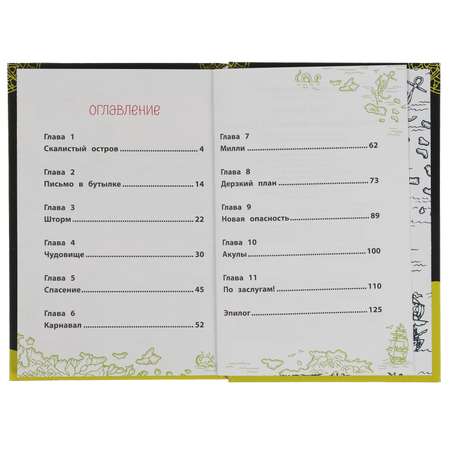 ОГЛАВЛЕНИЕ
Глава 1
Скалистый остров 4
Глава 2
Письмо в бутылке 14
Глава 3
Шторм 22
Глава 4
Чудовище 30
Глава 5
Спасение 45
Глава 6
Карнавал 52
Глава 7
Милли 62
Глава 8
Дерзкий план 73
Глава 9
Новая опасность 89
Глава 10
Акулы 100
Глава 11
По заслугам! 110
Эпилог 125